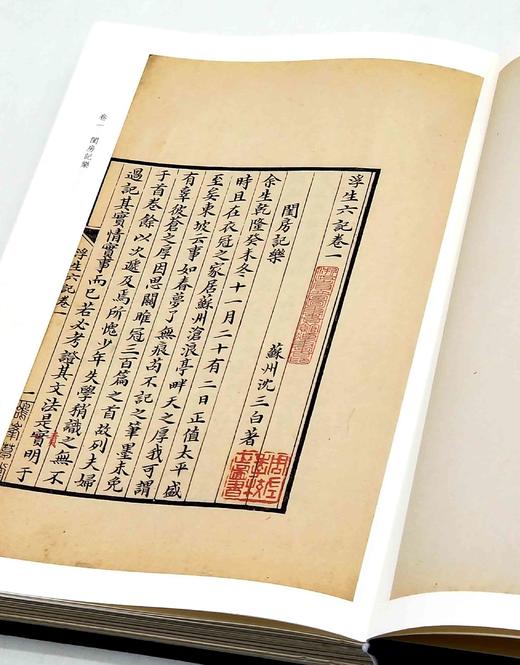 浮生六記卷一
閨房記樂
蘇州沈三白著
余生乾隆癸未冬十一月二十有二日正值太平盛
時且在衣冠之家居蘇州滄浪亭畔天之厚我可謂
至矣東坡云事如春夢了無痕苟不記之筆墨未免
有辜彼蒼之厚因思關雎冠三百篇之首故列夫婦
于首卷餘以次遞及焉所愧少年失學稍識之無不
過記其實情實事而已若必考證其文法是實明于
浮生六記卷一
一
卷一 閨房記樂